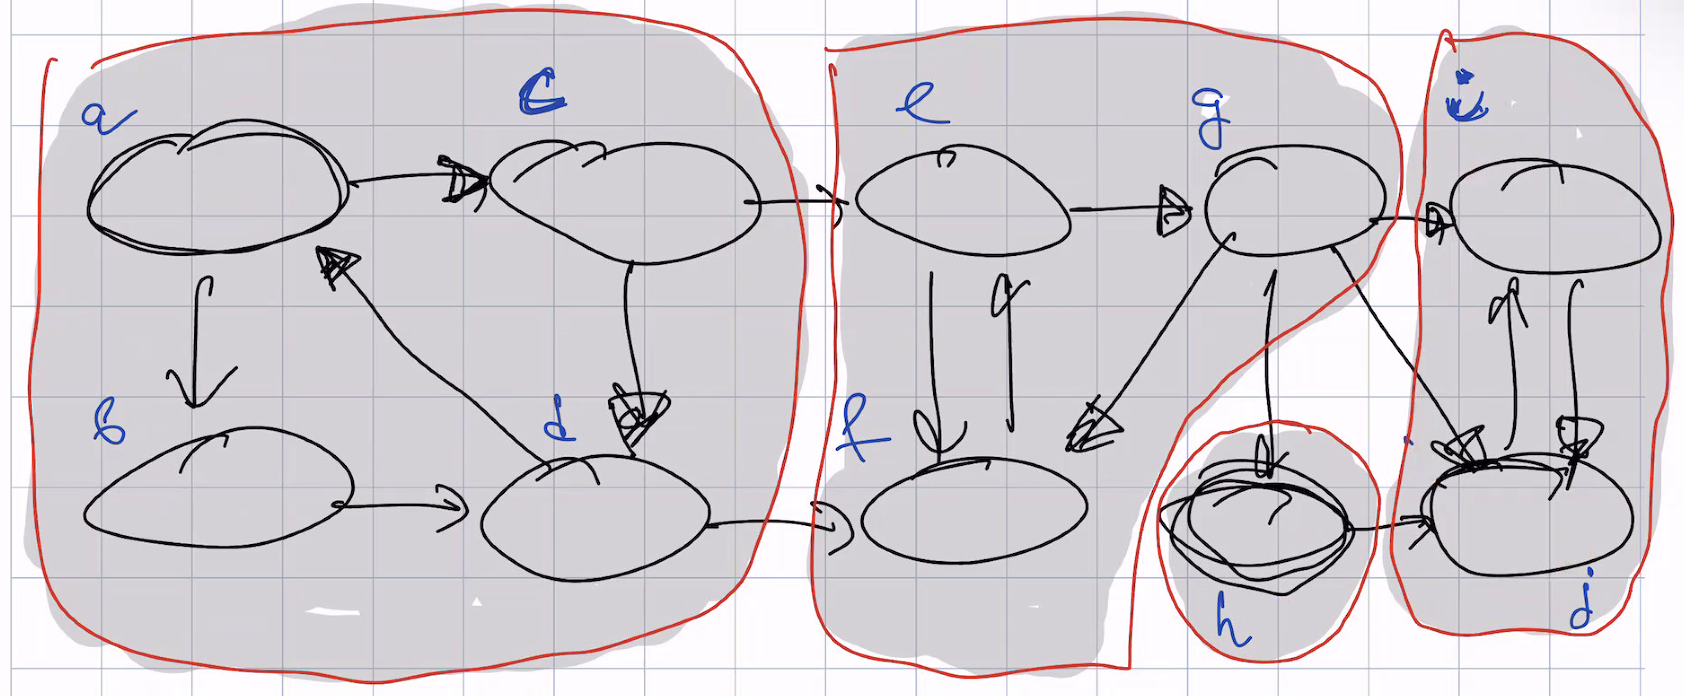 a
c
e
g
i
b
d
f
h
j